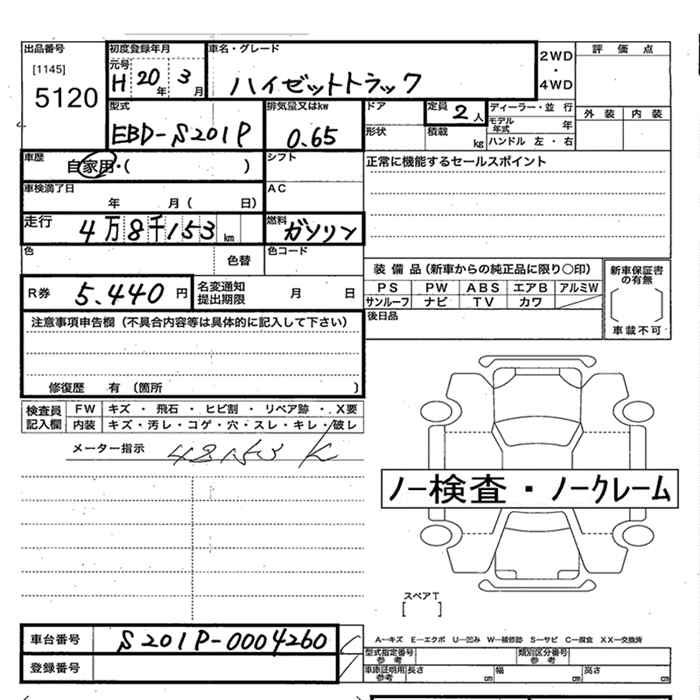 出品番号 初度登録年月 車名・グレード 2WD・4WD 評価点
[1145] 元号 H 20年 3月 ハイゼットトラック
5120 外装 内装
型式 排気量又はkw ドア 定員 2人 ディーラー・並行
EBD-S201P 0.65 形状 積載 kg モデル年式 年
ハンドル 左・右
車歴 自家用・( ) シフト 正常に機能するセールスポイント
車検満了日 年 月( 日) AC
走行 4万8千153km 燃料 ガソリン
色 色替 色コード
装備品(新車からの純正品に限り〇印) 新車保証書の有無
R券 5.440円 名変通知提出期限 月 日 PS PW ABS エアB アルミW
サンルーフ ナビ TV カワ 車載不可
注意事項申告欄(不具合内容等は具体的に記入して下さい) 後日品
修復歴 有(箇所 )
検査員記入欄 FW キズ・飛石・ヒビ割・リペア跡・X要
内装 キズ・汚レ・コゲ・穴・スレ・キレ・破レ
メーター指示 48153 K
ノー検査・ノークレーム
スペアT
[ ]
車台番号 S201P-0004260 A―キズ E―エクボ U―凹み W―補修跡 S―サビ C―腐食 XX―交換済
登録番号 型式指定番号 参考 類別区分番号 参考
車庫証明用 参考 長さ cm 幅 cm 高さ cm